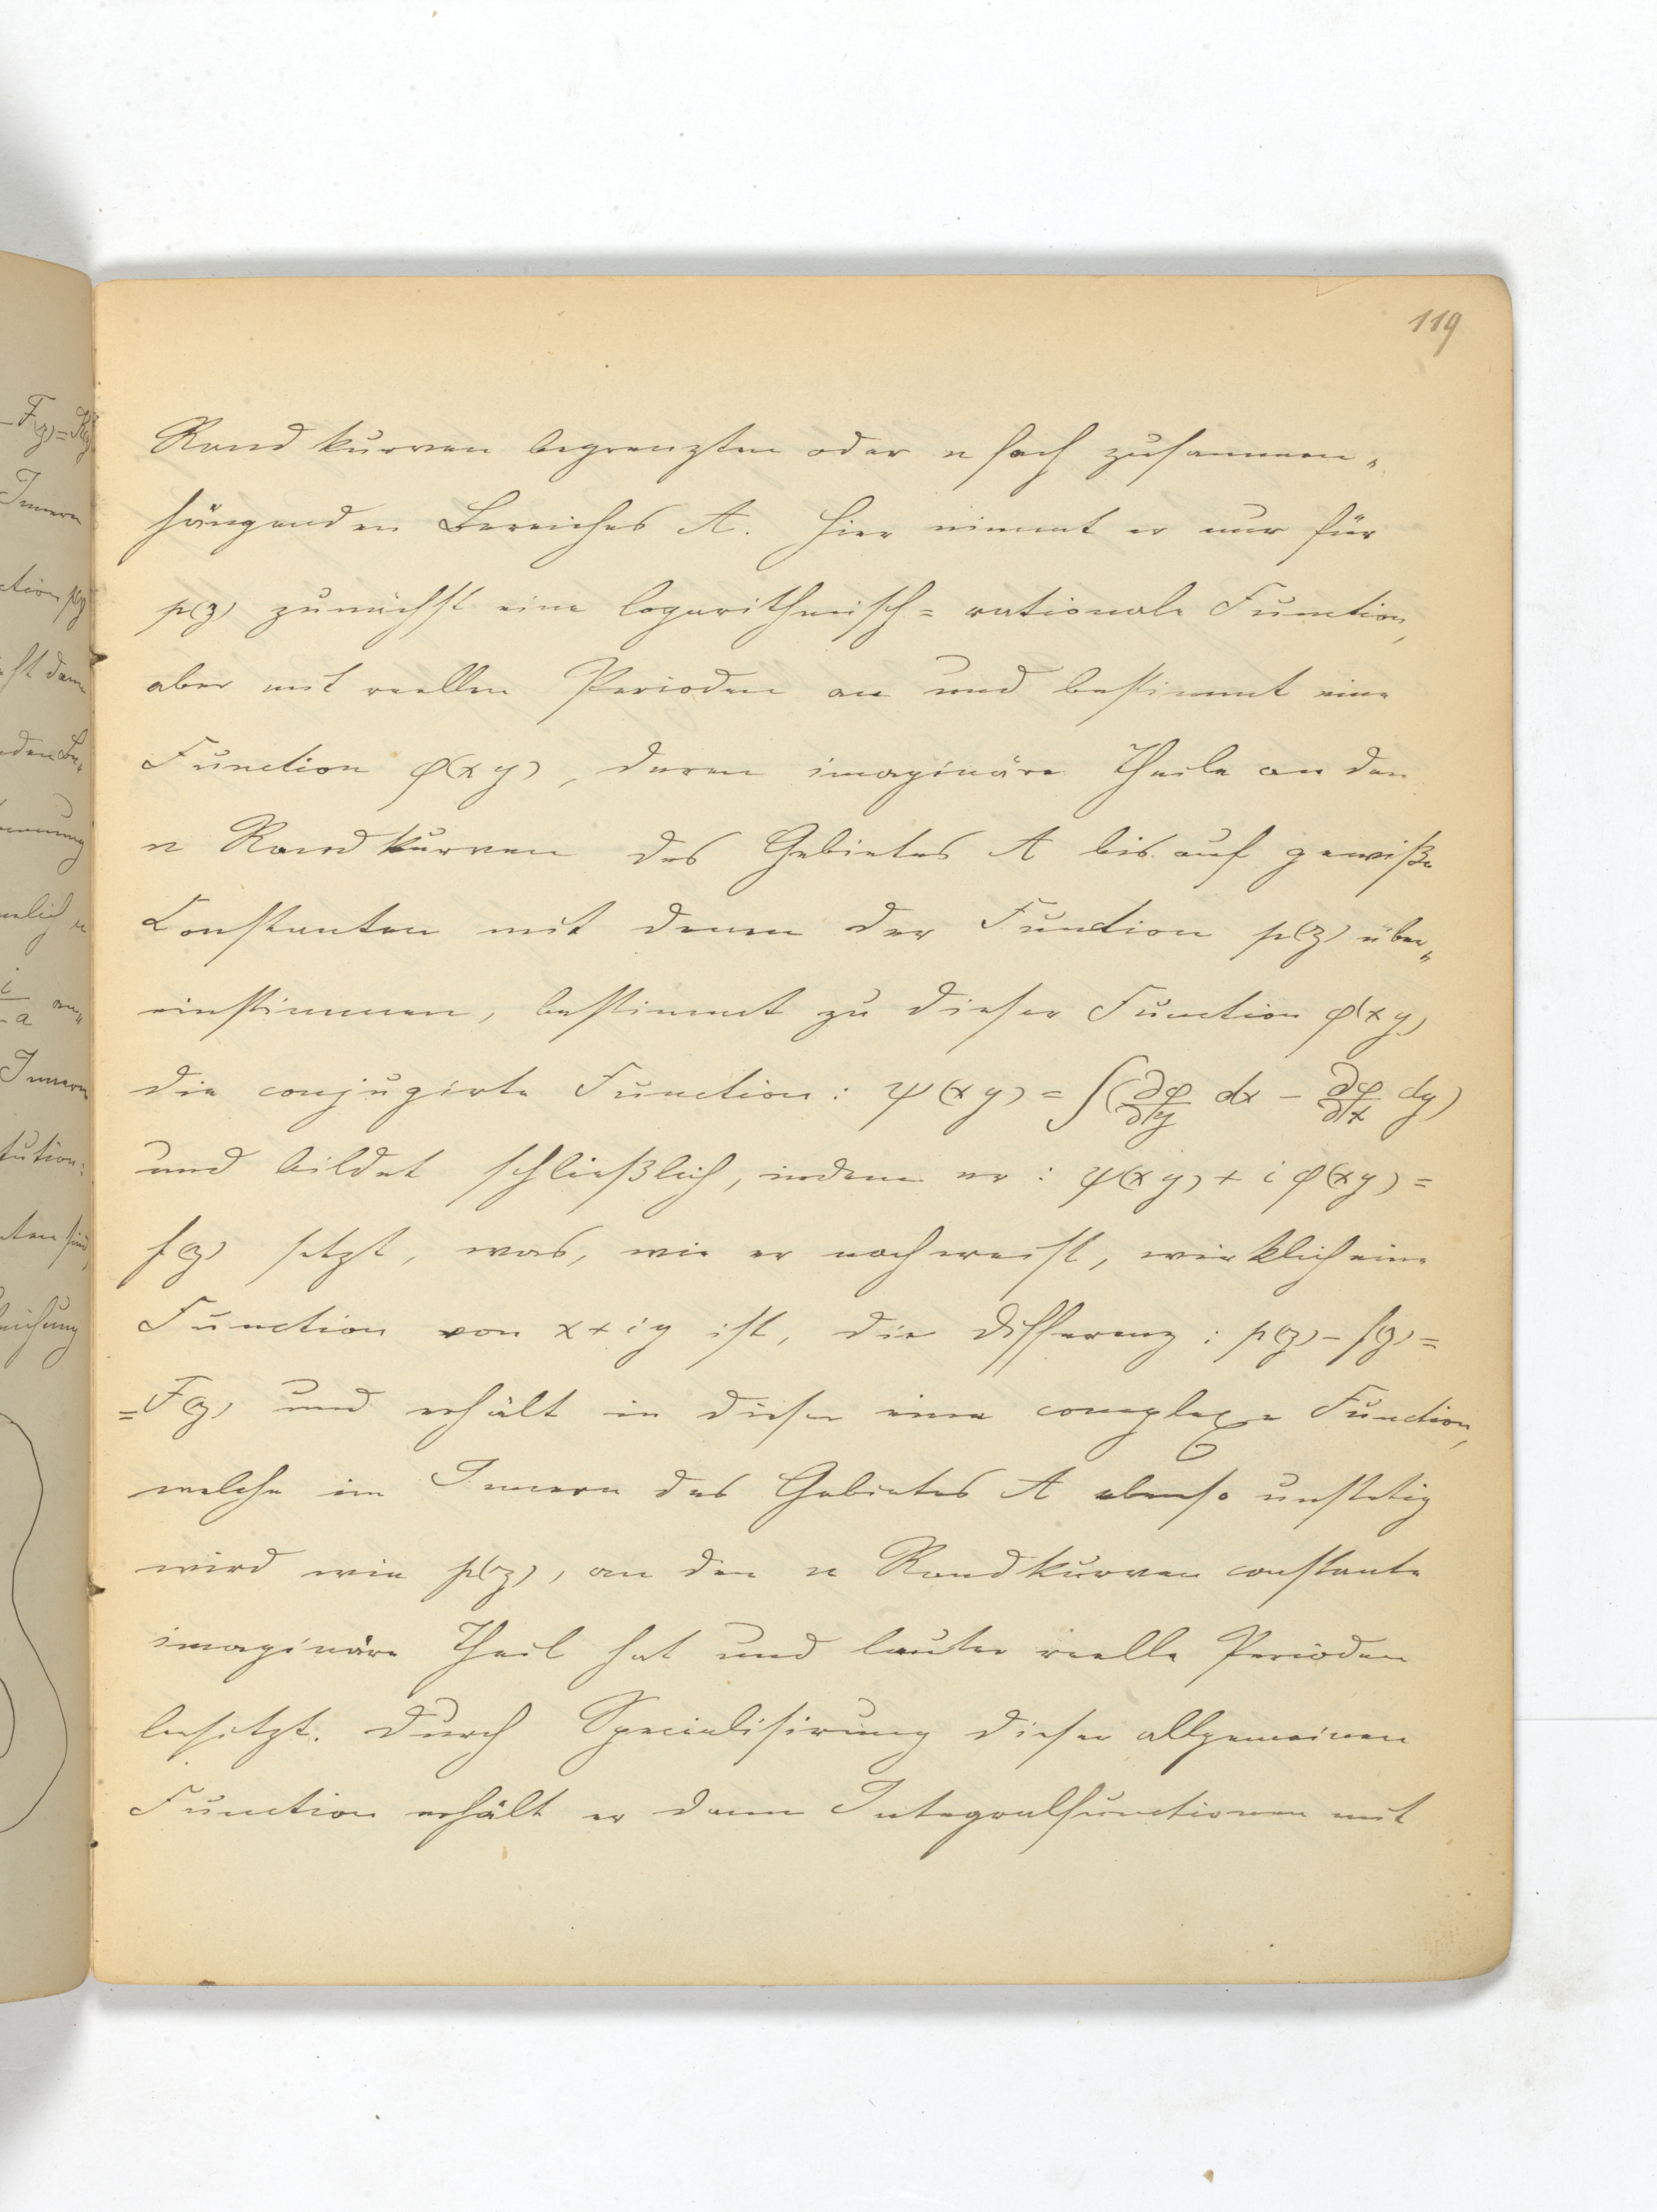 119
– F(z) = R(z)
Innern
ction p(z)
Rand kurven begrenzten oder n fach zusammen„
hängenden Bereiches A. Hier nimmt er nur für
p(z) zunächst eine logarithmisch= rationale Function,
aber mit reellen Perioden an und bestimmt eine
Function φ(x y), deren imaginäre Theile an den
n Randkurven des Gebietes A bis auf gewiße
Constanten mit denen der Function p(z) über„
einstimmen, bestimmt zu dieser Function φ(x y)
die conjugirte Function: ψ(x y) = ∫(∂φ/∂y dx – ∂φ/∂x dy)
und bildet schließlich, indem er: ψ(x y) + i φ(x y) =
f(z) setzt, was, wie er nachweist, wirklich eine
Function von x + i y ist, die Differenz: p(z) – f(z) =
= F(z) und erhält in dieser eine complexe Function,
welche im Innern des Gebietes A ebenso unstetig
wird wie p(z), an den n Randkurven constante
imaginäre Theil hat und lauter reelle Perioden
besitzt. Durch Specialisirung dieser allgemeinen
Function erhält er dann Integralfunctionen mit